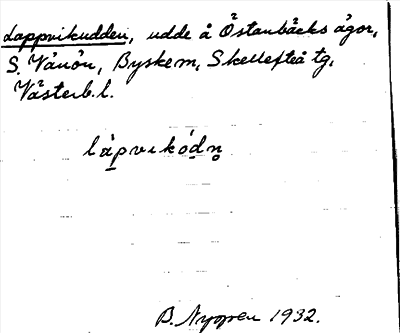 Lappvikudden, udde å Östanbäcks ägor,
S. Vånön, Byskem, Skellefteå tg,
Västerb.l.
làpvikódn̥
B. Nygren 1932.